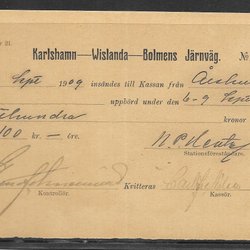 21.
Karlshamn—Wislanda—Bolmens Järnväg. №
Sept 1909 insändes til Kassan från
uppbörd under den 6-9 Sept
hundra kronor
100 kr. — öre.
Stationsföreståndare.
Kvitteras
Kontrollör. Kassör.